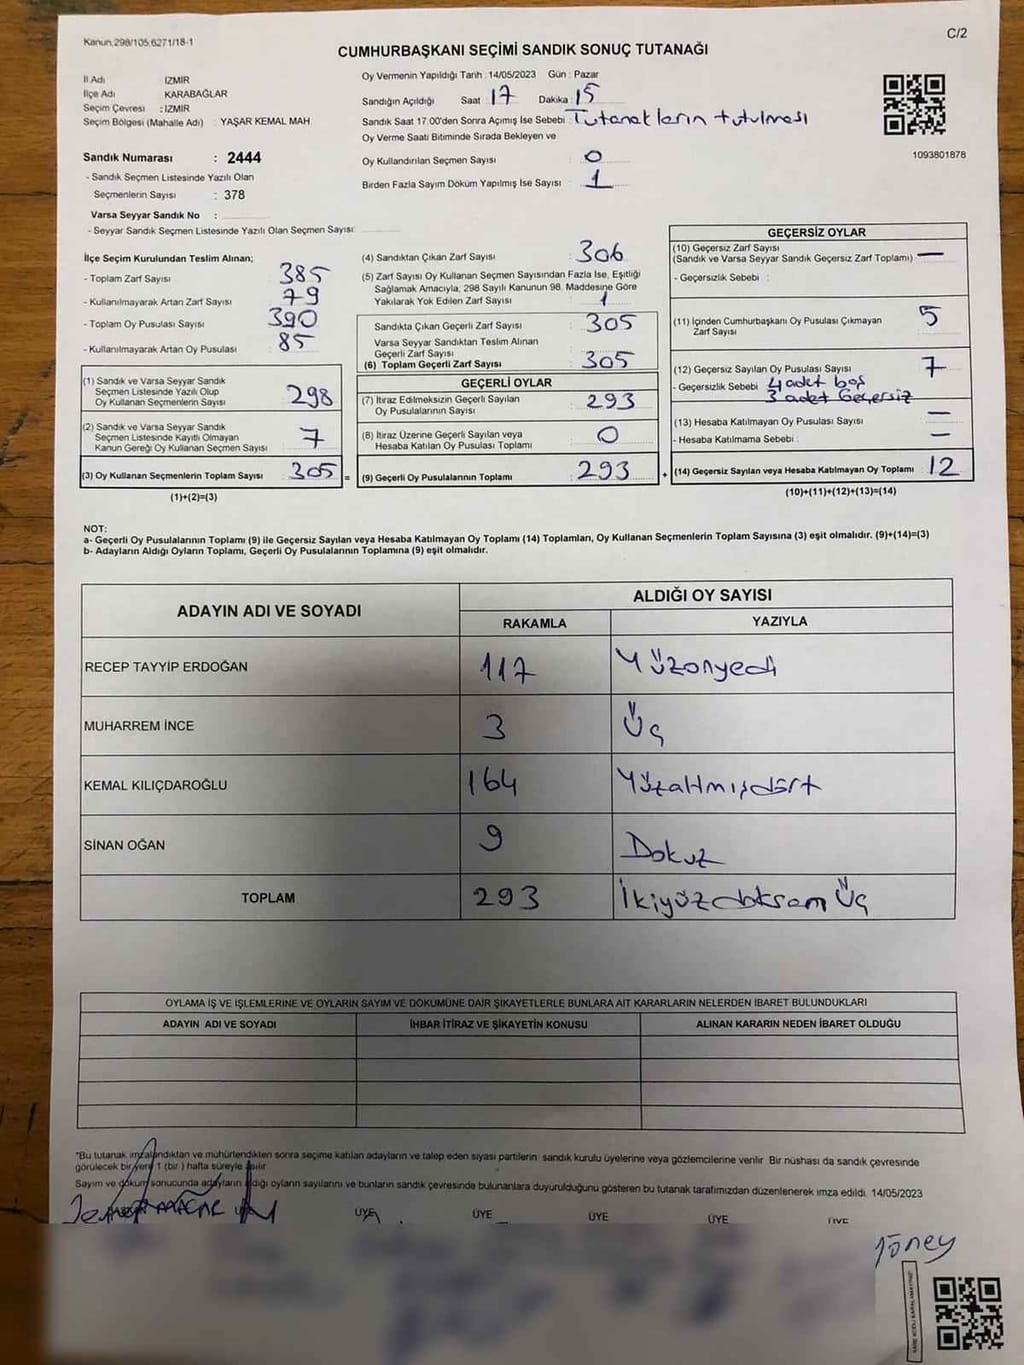 Kanun.298/105,6271/18-1
C/2
CUMHURBAŞKANI SEÇİMİ SANDIK SONUÇ TUTANAĞI
İl Adı İZMİR
İlçe Adı KARABAĞLAR
Seçim Çevresi : İZMİR
Seçim Bölgesi (Mahalle Adı) : YAŞAR KEMAL MAH.
Oy Vermenin Yapıldığı Tarih : 14/05/2023 Gün : Pazar
Sandığın Açıldığı Saat 17 Dakika : 15
Sandık Saat 17:00'den Sonra Açımış İse Sebebi : Tutanakların tutulması
Oy Verme Saati Bitiminde Sırada Bekleyen ve
Oy Kullandırılan Seçmen Sayısı : 0
Birden Fazla Sayım Döküm Yapılmış İse Sayısı : 1
1093801878
Sandık Numarası : 2444
- Sandık Seçmen Listesinde Yazılı Olan
Seçmenlerin Sayısı : 378
Varsa Seyyar Sandık No :
- Seyyar Sandık Seçmen Listesinde Yazılı Olan Seçmen Sayısı:
İlçe Seçim Kurulundan Teslim Alınan;
- Toplam Zarf Sayısı : 385
- Kullanılmayarak Artan Zarf Sayısı : 79
- Toplam Oy Pusulası Sayısı : 390
- Kullanılmayarak Artan Oy Pusulası : 85
(1) Sandık ve Varsa Seyyar Sandık
Seçmen Listesinde Yazılı Olup
Oy Kullanan Seçmenlerin Sayısı : 298
(2) Sandık ve Varsa Seyyar Sandık
Seçmen Listesinde Kayıtlı Olmayan
Kanun Gereği Oy Kullanan Seçmen Sayısı : 7
(3) Oy Kullanan Seçmenlerin Toplam Sayısı : 305 =
(1)+(2)=(3)
(4) Sandıktan Çıkan Zarf Sayısı : 306
(5) Zarf Sayısı Oy Kullanan Seçmen Sayısından Fazla İse, Eşitliği
Sağlamak Amacıyla; 298 Sayılı Kanunun 98. Maddesine Göre
Yakılarak Yok Edilen Zarf Sayısı : 1
Sandıkta Çıkan Geçerli Zarf Sayısı : 305
Varsa Seyyar Sandıktan Teslim Alınan
Geçerli Zarf Sayısı :
(6) Toplam Geçerli Zarf Sayısı : 305
GEÇERLİ OYLAR
(7) İtiraz Edilmeksizin Geçerli Sayılan
Oy Pusulalarının Sayısı : 293
(8) İtiraz Üzerine Geçerli Sayılan veya
Hesaba Katılan Oy Pusulası Toplamı : 0
(9) Geçerli Oy Pusulalarının Toplamı : 293 +
GEÇERSİZ OYLAR
(10) Geçersiz Zarf Sayısı
(Sandık ve Varsa Seyyar Sandık Geçersiz Zarf Toplamı) : —
- Geçersizlik Sebebi :
(11) İçinden Cumhurbaşkanı Oy Pusulası Çıkmayan
Zarf Sayısı : 5
(12) Geçersiz Sayılan Oy Pusulası Sayısı : 7
- Geçersizlik Sebebi : 4 adet boş
3 adet Geçersiz
(13) Hesaba Katılmayan Oy Pusulası Sayısı : —
- Hesaba Katılmama Sebebi : —
(14) Geçersiz Sayılan veya Hesaba Katılmayan Oy Toplamı : 12
(10)+(11)+(12)+(13)=(14)
NOT:
a- Geçerli Oy Pusulalarının Toplamı (9) ile Geçersiz Sayılan veya Hesaba Katılmayan Oy Toplamı (14) Toplamları, Oy Kullanan Seçmenlerin Toplam Sayısına (3) eşit olmalıdır. (9)+(14)=(3)
b- Adayların Aldığı Oyların Toplamı, Geçerli Oy Pusulalarının Toplamına (9) eşit olmalıdır.
ADAYIN ADI VE SOYADI ALDIĞI OY SAYISI
RAKAMLA YAZIYLA
RECEP TAYYİP ERDOĞAN 117 Yüzonyedi
MUHARREM İNCE 3 Üç
KEMAL KILIÇDAROĞLU 164 Yüzaltmışdört
SİNAN OĞAN 9 Dokuz
TOPLAM 293 İkiyüzdoksan Üç
OYLAMA İŞ VE İŞLEMLERİNE VE OYLARIN SAYIM VE DÖKÜMÜNE DAİR ŞİKAYETLERLE BUNLARA AİT KARARLARIN NELERDEN İBARET BULUNDUKLARI
ADAYIN ADI VE SOYADI İHBAR İTİRAZ VE ŞİKAYETİN KONUSU ALINAN KARARIN NEDEN İBARET OLDUĞU
"Bu tutanak imzalandıktan ve mühürlendikten sonra seçime katılan adayların ve talep eden siyasi partilerin sandık kurulu üyelerine veya gözlemcilerine verilir. Bir nüshası da sandık çevresinde
görülecek bir yere 1 (bir) hafta süreyle asılır.
Sayım ve döküm sonucunda adayların aldığı oyların sayılarını ve bunların sandık çevresinde bulunanlara duyurulduğunu gösteren bu tutanak tarafımızdan düzenlenerek imza edildi. 14/05/2023
ÜYE ÜYE ÜYE ÜYE ÜYE